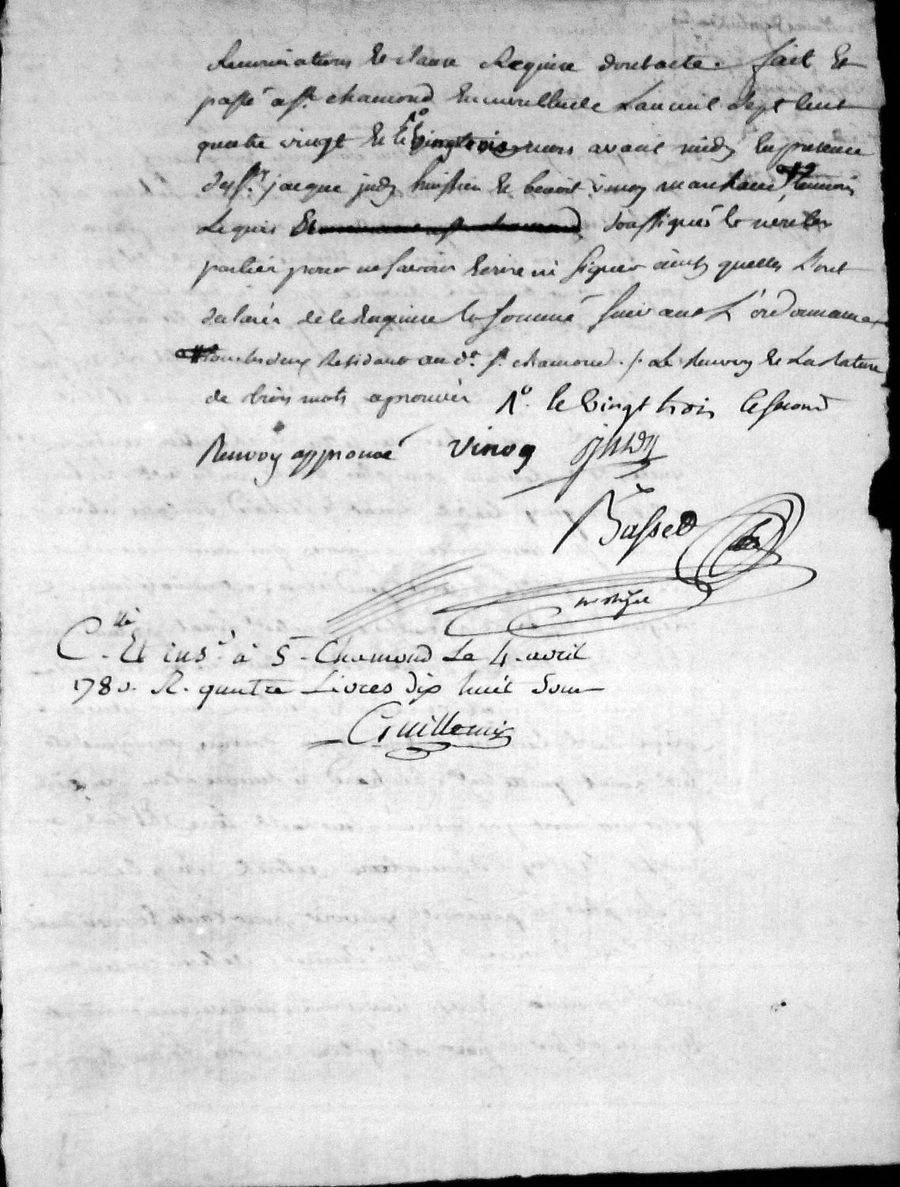 Renonciations et clause Requise dont acte. fait et
passé a st. chamond En mon etude L'an mil Sept Cent
quatre vingt et le vingt trois mars avant midy En presence
de srs. jacque judy huissier et benoit vinoy marchand temoin
Requis Soussignés et non les
parties pour ne savoir Ecrire ni Signer ainsy quelles L'ont
declaré de ce Requise et Sommé Suivant L'ordonnance
tous les deux Residant au dt. st. chamond ./. Le Renvoy et La Rature
de trois mots aprouvés 1o. le vingt trois le second
Renvoy approuvé vinoy judy
Basset
notaire
C.llé Et ins.é à St. Chamond Le 4. avril
1780. R. quatre Livres dix huit Sous
Guillemin